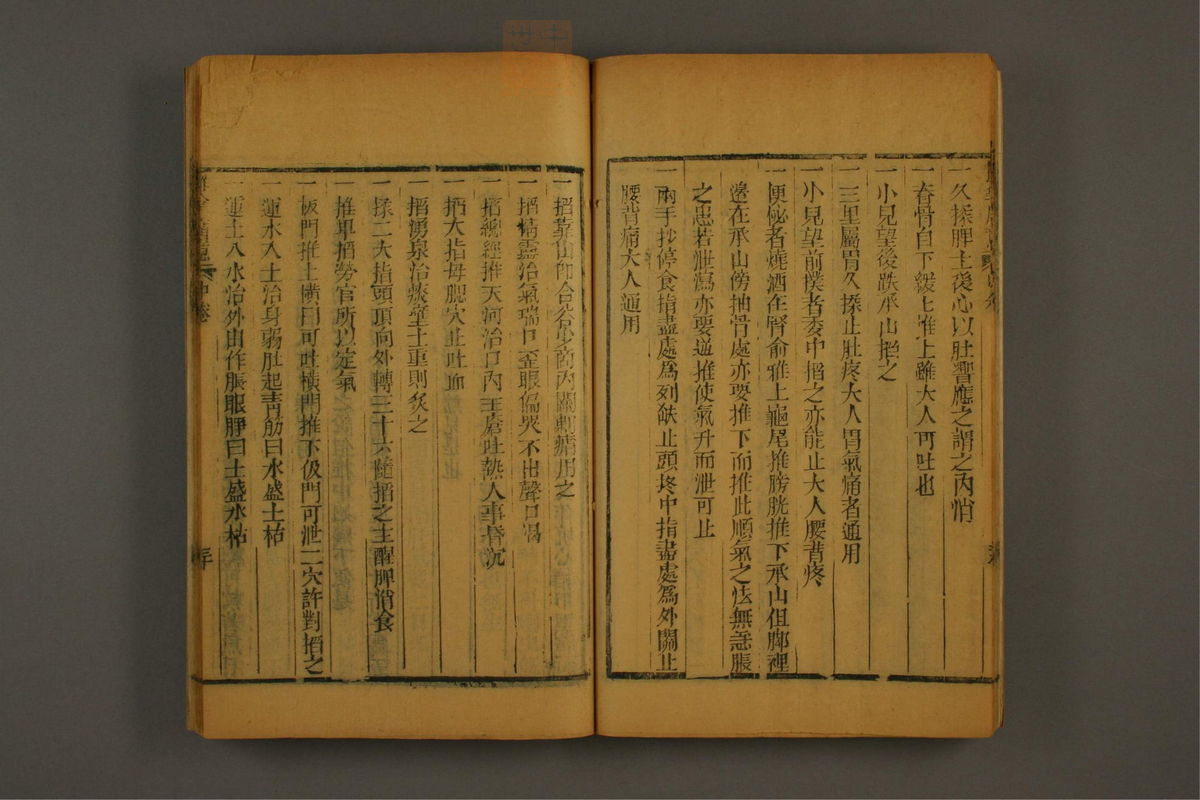 一久揉脾土後心以肚響應之謂之內消
一脊骨自下緩七推上雖大人可吐也
一小兒望後跌承山掐之
一三里屬胃久揉止肚疼大人胃氣痛者通用
一小兒望前撲者委中掐之亦能止大人腰背疼
一便秘者燒酒在腎俞推上龜尾推膀胱推下承山但脚裡
邊在承山傍抽骨處亦要推下而推此順氣之法無急脹
之患若泄瀉亦要逆推使氣升而泄可止
一兩手抄停食指盡處為列缺止頭疼中指盡處為外關止
腰背痛大人通用
一掐靠山即合谷少商內關剿瘧用之
一掐精靈治氣瑞口歪眼偏哭不出聲口渴
一掐總經推天河治口內生瘡吐熱人事昏沉
一掐大指母腮穴止吐血
一掐湧泉治痰壅上重則灸之
一揉二大指頭頂向外轉三十六隨掐之主醒脾消食
一推車掐勞宮所以定氣
一板門推上橫門可吐橫門推下板門可泄二穴許對掐之
一運水入土治身弱肚起青筋曰水盛土枯
一運土入水治外由作脹眼睜曰土盛水枯
中卷